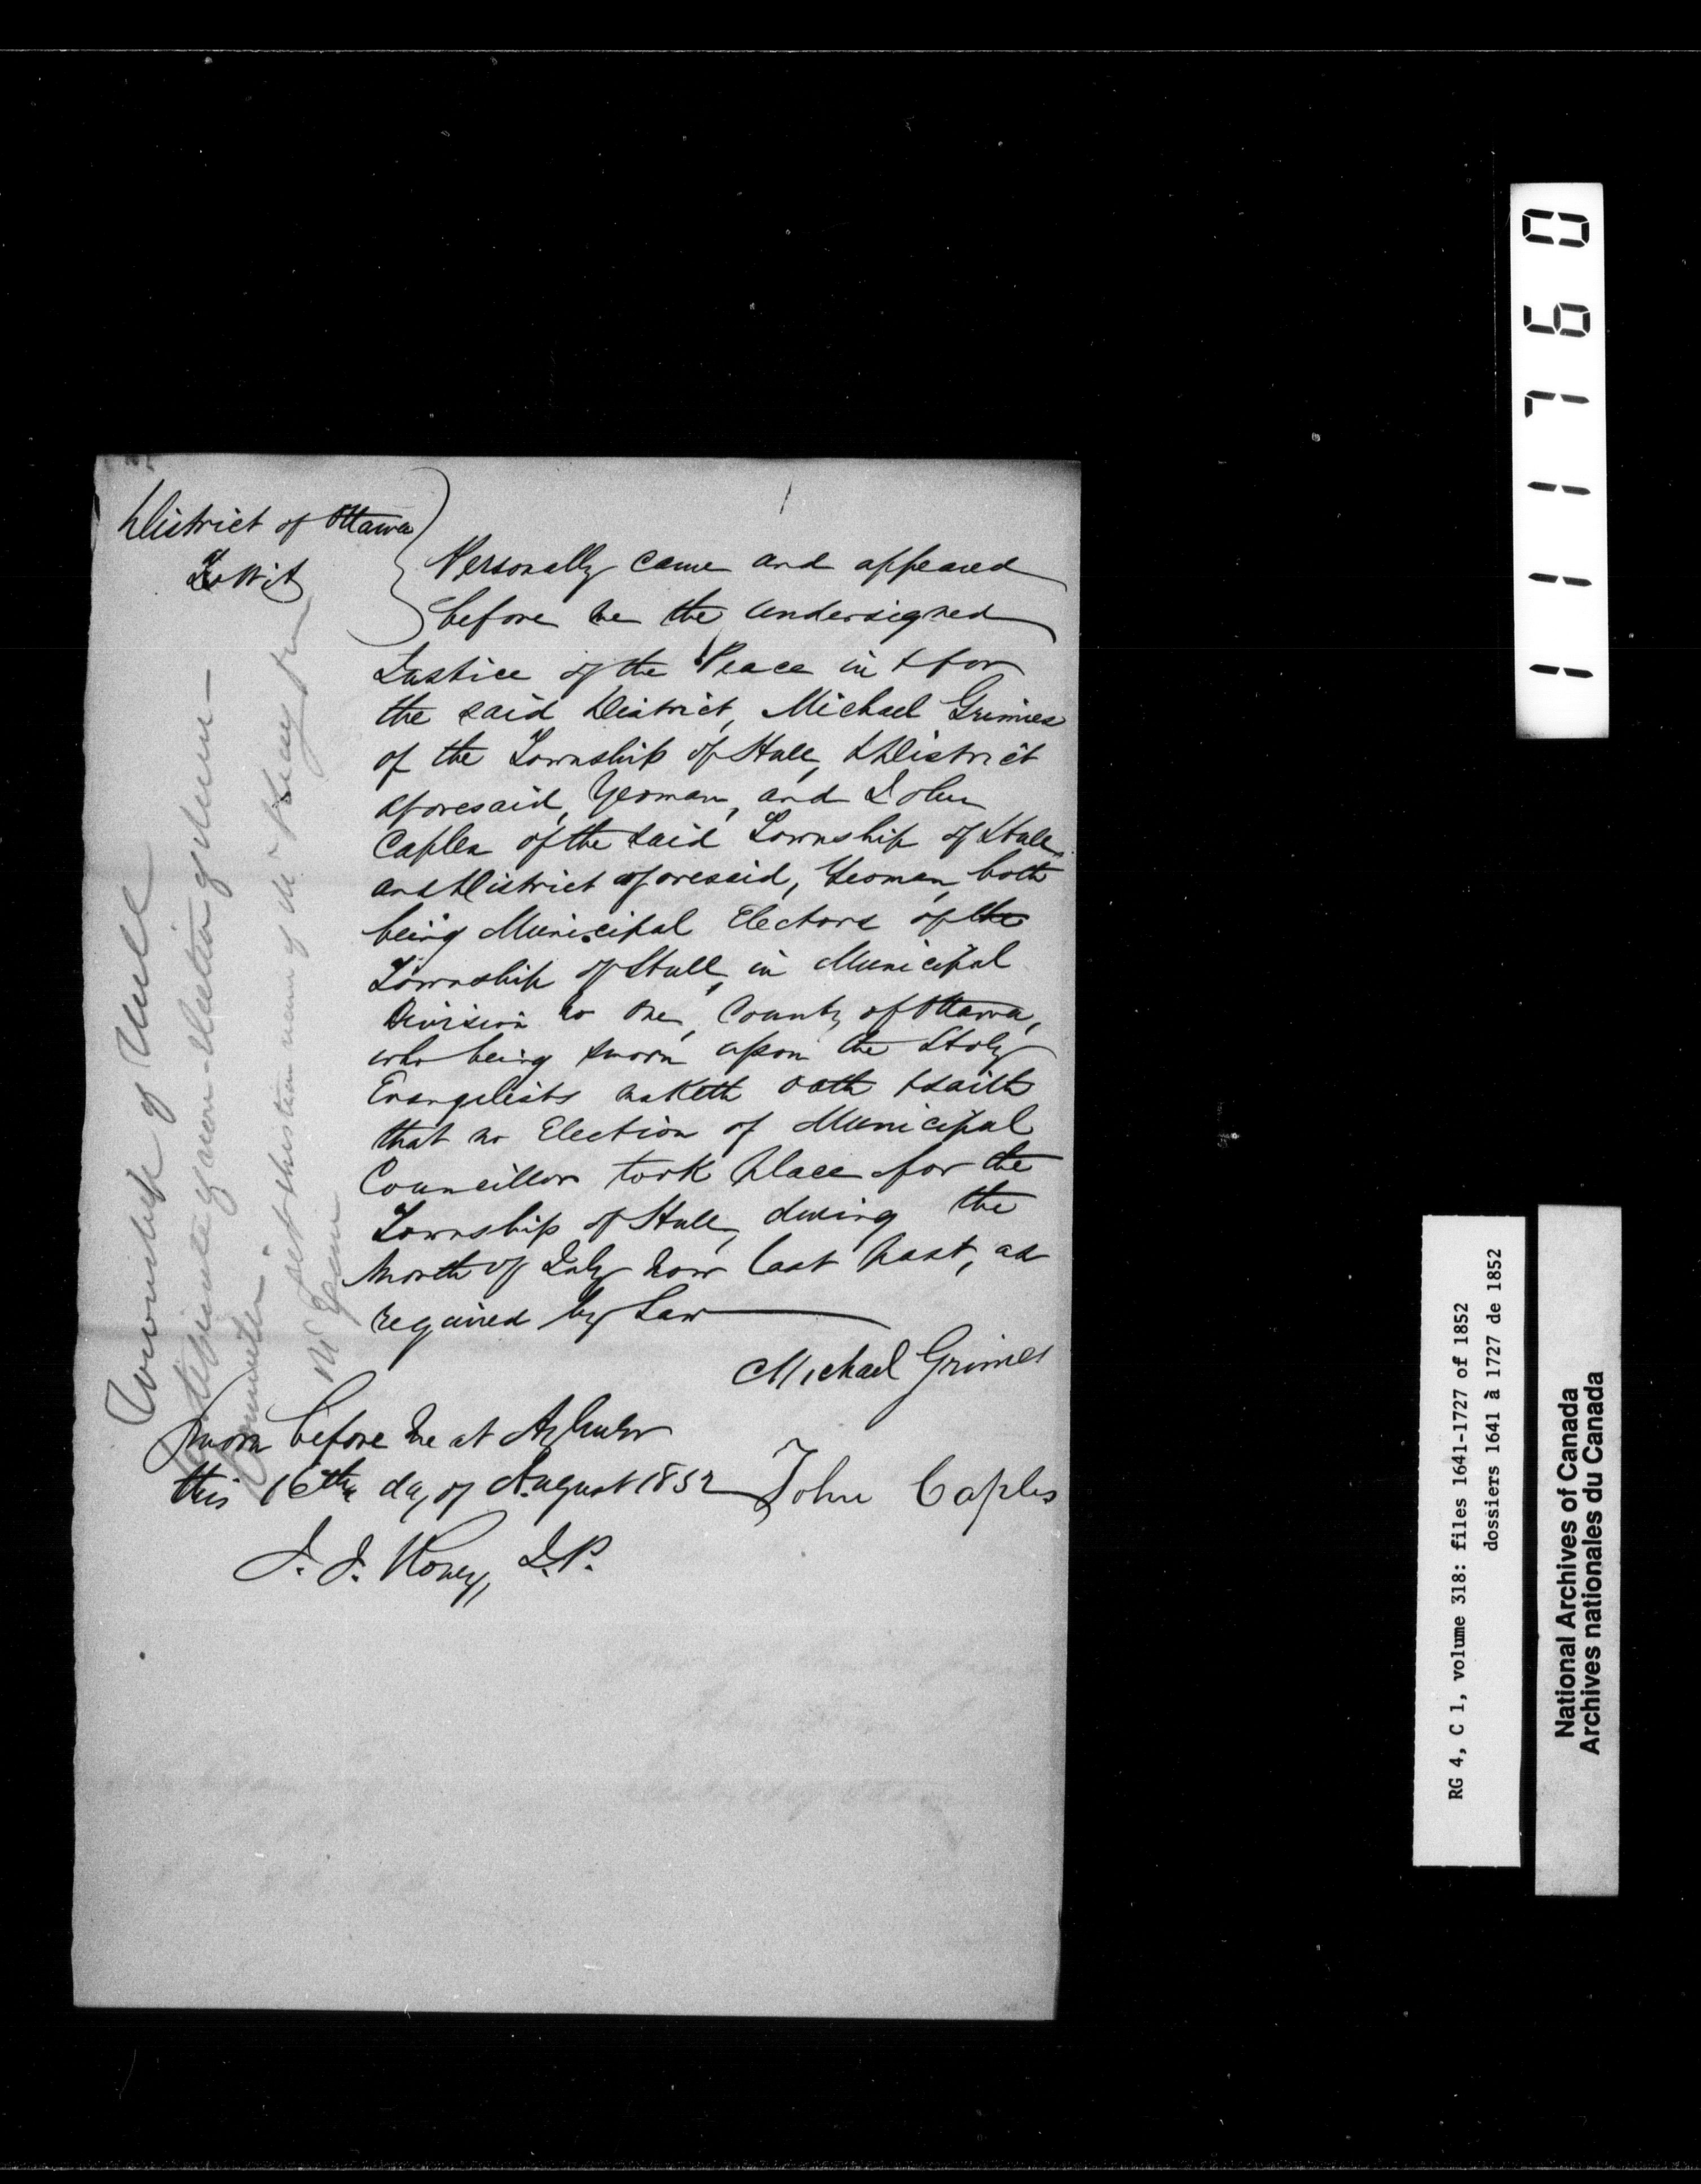 District of Ottawa
To Wit
Personally came and appeared
before me the undersigned
Justice of the Peace in & for
the said District, Michael Grimes
of the Township of Hull, & District
aforesaid, Yeoman, and John
Caples of the said Township of Hull,
and District aforesaid, Yeoman, both
being Municipal Electors of the
Township of Hull, in Municipal
Division No One, County of Ottawa,
who being sworn upon the Holy
Evangelists maketh oath & saith
that no Election of Municipal
Councillors took place for the
Township of Hull, during the
Month of July now last past, as
required by Law
Michael Grimes
Sworn before me at Aylmer
this 16th day of August 1852
John Caples
J. J. Roney, J.P.
Township of Hull
Certificate of non-election of
111760
RG 4, C 1, volume 318: files 1641-1727 of 1852
dossiers 1641 à 1727 de 1852
National Archives of Canada
Archives nationales du Canada